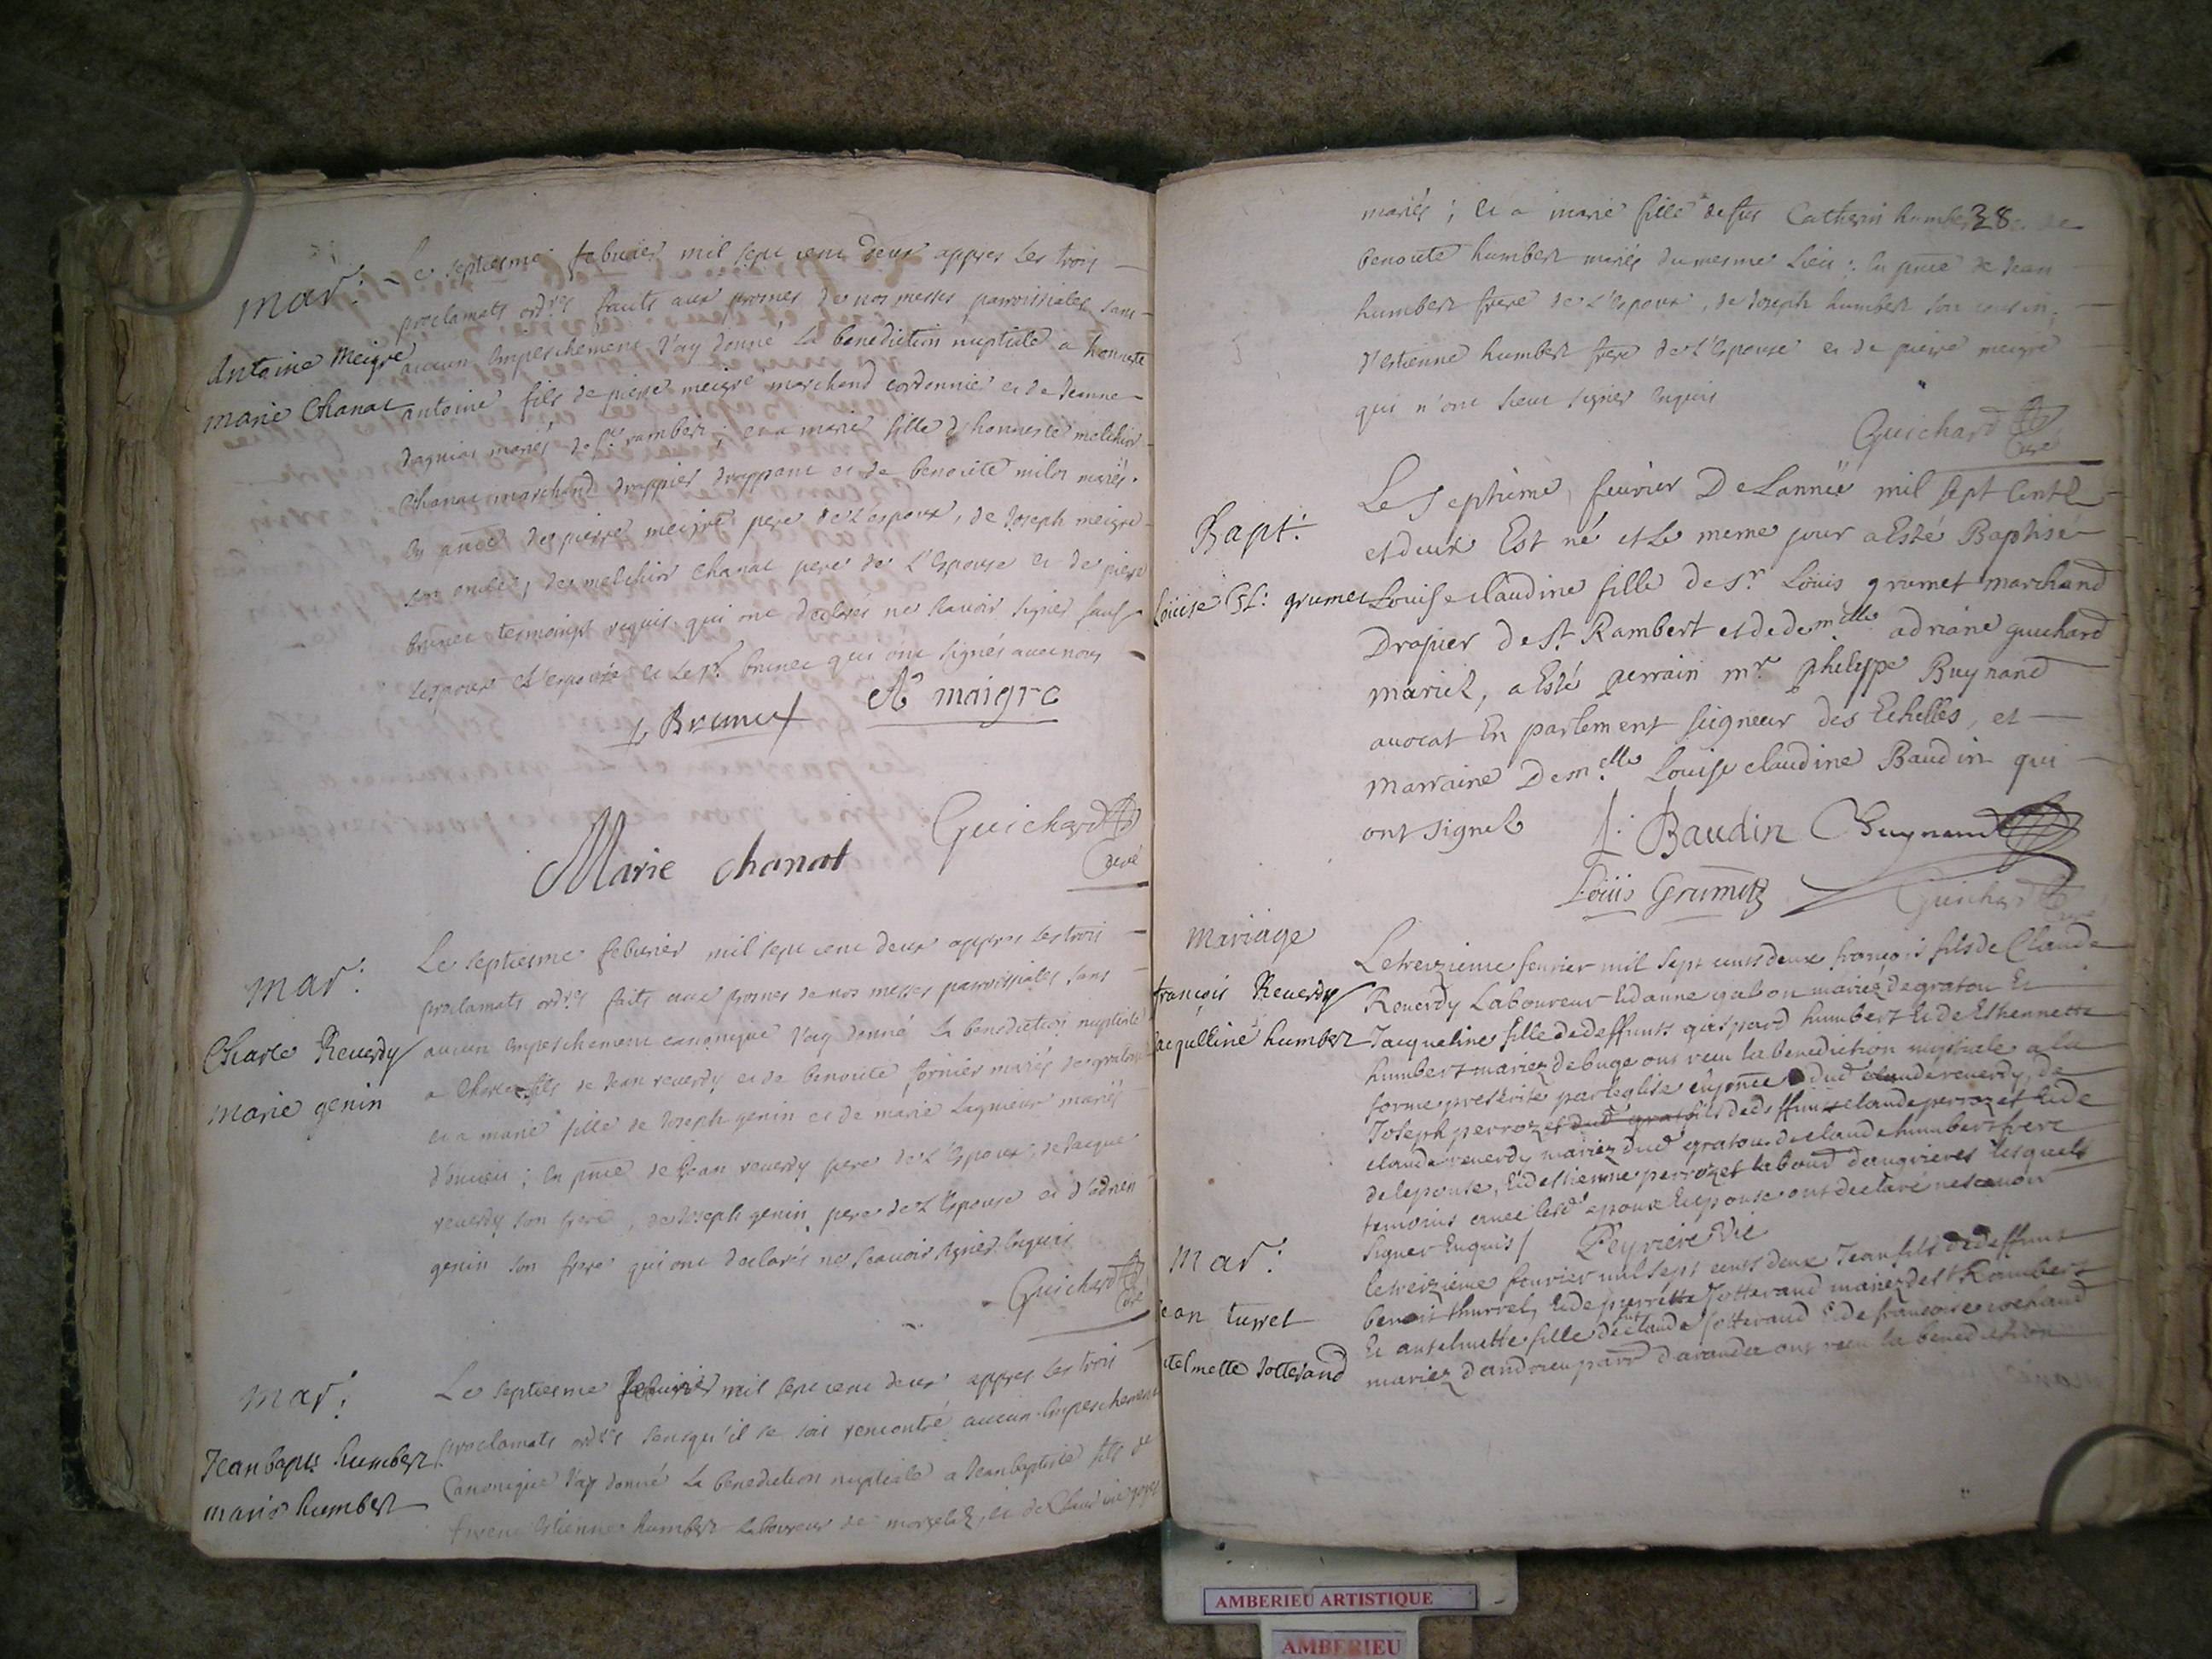 mar:
Antoine Meigre
Marie Chanat
Le septiesme febvrier mil sept cent deux appres les trois
proclamats ordres faits aux prosnes de nos messes parroissiales sans
aucun empeschement J'ay donné la benediction nuptiale a honneste
antoine fils de pierre meigre marchand cordonnier et de Jeanne
mariés de St rambert; et a marie fille d'honneste melchior
Chanat marchand drappier drappant et de benoite milot mariés.
En pnce de pierre meigre pere de l'espoux, de Joseph meigre
son oncle, de melchior Chanat pere de l'Espouse et de pierre
brunet tesmoings requis qui ont declarés ne scavoir signer sauf
l'espoux et l'espouse et le Sr brunet qui ont signés avec nous
Brunet
A maigre
Marie chanat
Guichard
Curé
mar:
Charle Reverdy
Marie genin
Le septiesme febvrier mil sept cent deux appres les trois
proclamats ordres faits aux prosnes de nos messes parroissiales sans
aucun empeschement canonique J'ay donné la benediction nuptiale
a Charle fils de Jean reverdy et de benoite fornier mariés de gratoux
et a marie fille de Joseph genin et de marie Lagnieur mariés
d'oncieu; En pnce de Jean reverdy pere de l'Espoux, de Jacque
reverdy son frere, de Joseph genin pere de l'Espouse et d'adrien
genin son frere qui ont declarés ne scavoir signer Enquis
Guichard
Curé
mar:
Jean bapte humbert
marie humbert
Le septiesme febvrier mil sept cent deux appres les trois
proclamats ordres sans qu'il se soit rencontré aucun Empeschement
Canonique J'ay donné la benediction nuptiale a Jean baptiste fils de
Estienne humbert laboureur de et de Claudine
38
mariés; et a marie fille de feu Catherin humbert et de
benoite humbert mariés du mesme lieu; En pnce de Jean
humbert frere de l'Espoux, de Joseph humbert son cousin,
d'estienne humbert frere de l'Espouse et de pierre meigre
qui n'ont sceu signer Enquis
Guichard
Curé
Bapt:
Loüise Cl: grumet
Le septieme feuvrier De Lannëe mil sept Centz
et deux Est né et le meme jour a Esté Baptisé
Louise claudine fille de sr Loüis grumet marchand
Drapier de St Rambert et de demelle adriane guichard
mariez, a Esté perrain mr philippe Buynand
avocat En parlement seigneur des Echelles, et
marraine Demelle Louise claudine Baudin qui
ont signez
L: Baudin
Buynand
Loüis Grumetz
Guichard
Curé
mariage
françois Reverdy
Jacqulline humber
Le treizieme fevrier mil sept cents deux françois fils de Claude
Reverdy Laboureur Et danne mariez de gratou Et
Jacqueline fille de deffunts gaspard humbert Et de Esthennette
humbert mariez de buge ont receu la benediction nuptiale a la
forme prescrite par leglise en pnce dud claude reverdy, de
Joseph perrozet fils de deffunts claude perrozet Et de
claude reverdy mariez dud gratou de claude humbert frere
de lepouse, Et destienne perrozet d'angrieres lesquels
temoins avec lesd epoux Et epouse ont declaré ne scavoir
signer Enquis
Peyriere Vic
mar:
Jean turret
telmette Jotterand
Le treizieme fevrier mil sept cents deux Jean fils de deffunt
benoit thurrel, Et de pierrette Jotterand mariez de st Rambert
Et antelmette fille de fut claude Jotterand Et de francoise
mariez dandrieu parr daranda ont receu la benediction
AMBERIEU ARTISTIQUE
AMBERIEU